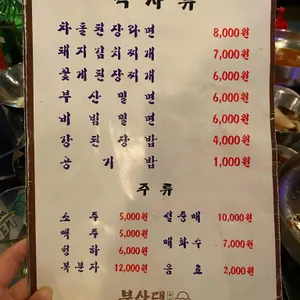 식사류
차돌된장라면 8,000원
돼지김치찌개 7,000원
꽃게된장찌개 7,000원
부산밀면 6,000원
비빔밀면 6,000원
강된장밥 4,000원
공기밥 1,000원
주류
소주 5,000원 설중매 10,000원
맥주 5,000원 매화수 7,000원
청하 6,000원
복분자 12,000원 음료 2,000원
부산댁